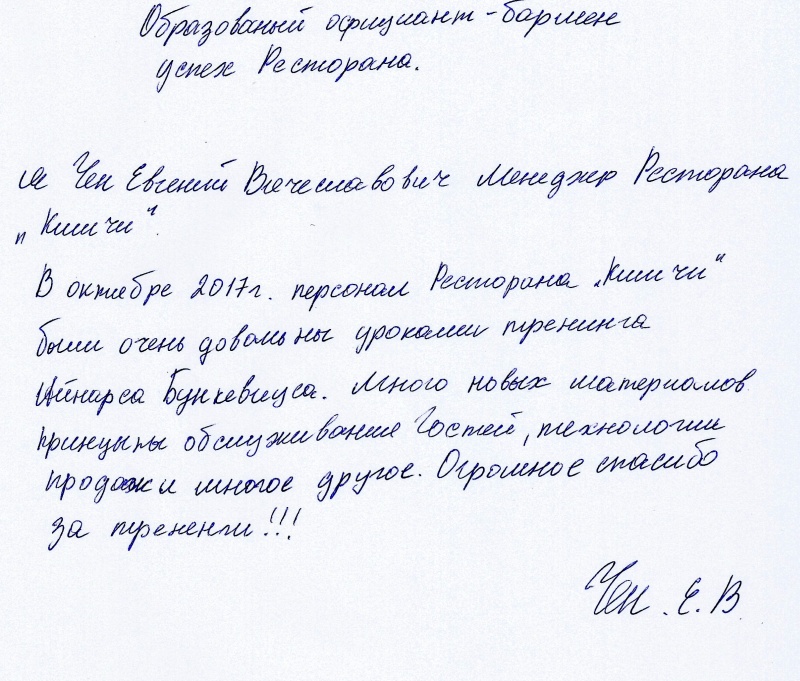 Образованый официант-бармен
успех Ресторана.
Я Чен Евгений Вячеславович Менеджер Ресторана
„Кимчи“.
В октябре 2017г. персонал Ресторана „Кимчи“
были очень довольны уроками тренинга
Айнарса Бункевицса. Много новых материалов
принцыпы обслуживание Гостей, технологии
продаж и многое другое. Огромное спасибо
за тренинги!!!
Чен. Е. В